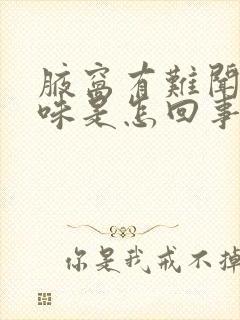 腋窩有難聞
味是怎回事
你是我戒不掉